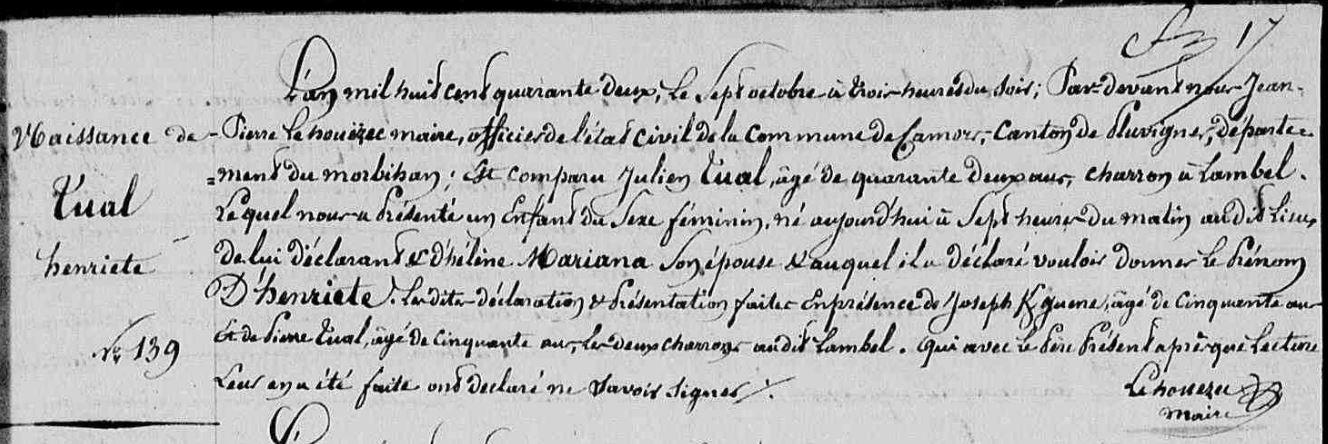 17
L'an mil huit cent quarante deux, le Sept octobre à trois heures du soir; Par devant nous Jean-
Naissance de
Pierre Le houëzec maire, officier de l'état civil de la Commune de Camors, Canton de Pluvigner, départe=
=ment du morbihan; Est comparu Julien Tual, âgé de quarante deux ans, charron à Lambel.
Tual
Lequel nous a Présenté un Enfant du Sexe féminin, né aujourd'hui à Sept heures du matin audit lieu,
henriete
de lui déclarant & d'hélène Mariana Son épouse & auquel il a déclaré vouloir donner le Prénom
D'henriete. Les dites déclaration & Présentation faites En présence de Joseph K/guene, âgé de Cinquante ans
Et de Pierre Tual, âgé de Cinquante ans, les deux charrons audit Lambel. Qui avec le Père Présent après que Lecture
N° 139
Leur en a été faite ont déclaré ne Savoir Signer.
Le houezec
maire